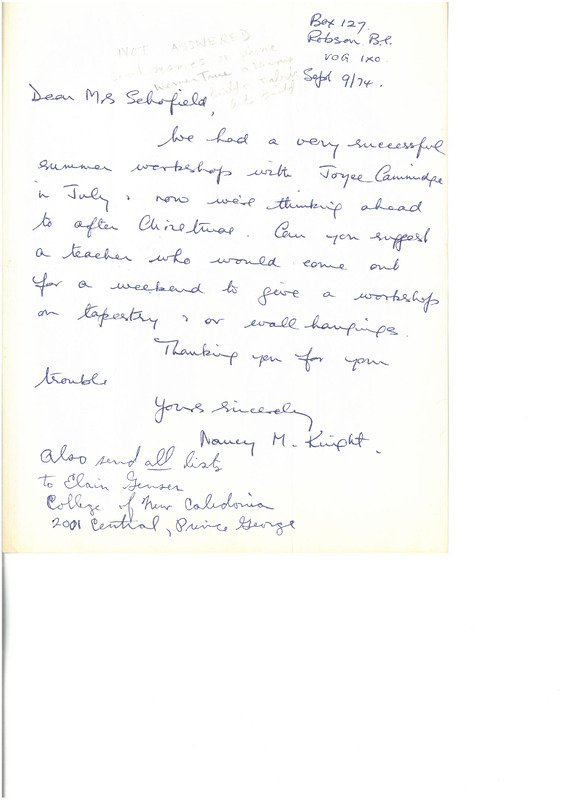 Box 127.
Robson B.C.
V0G 1X0
Sept 9/74.
NOT ANSWERED
Dear Mrs Schofield,
We had a very successful
summer workshop with Joyce Cammidge
in July & now we're thinking ahead
to after Christmas. Can you suggest
a teacher who would come out
for a weekend to give a workshop
on tapestry & or wall hangings.
Thanking you for your
trouble
Yours sincerely
Nancy M. Knight.
Also send all lists
to Elain Genser
College of New Caledonia
2001 Central, Prince George